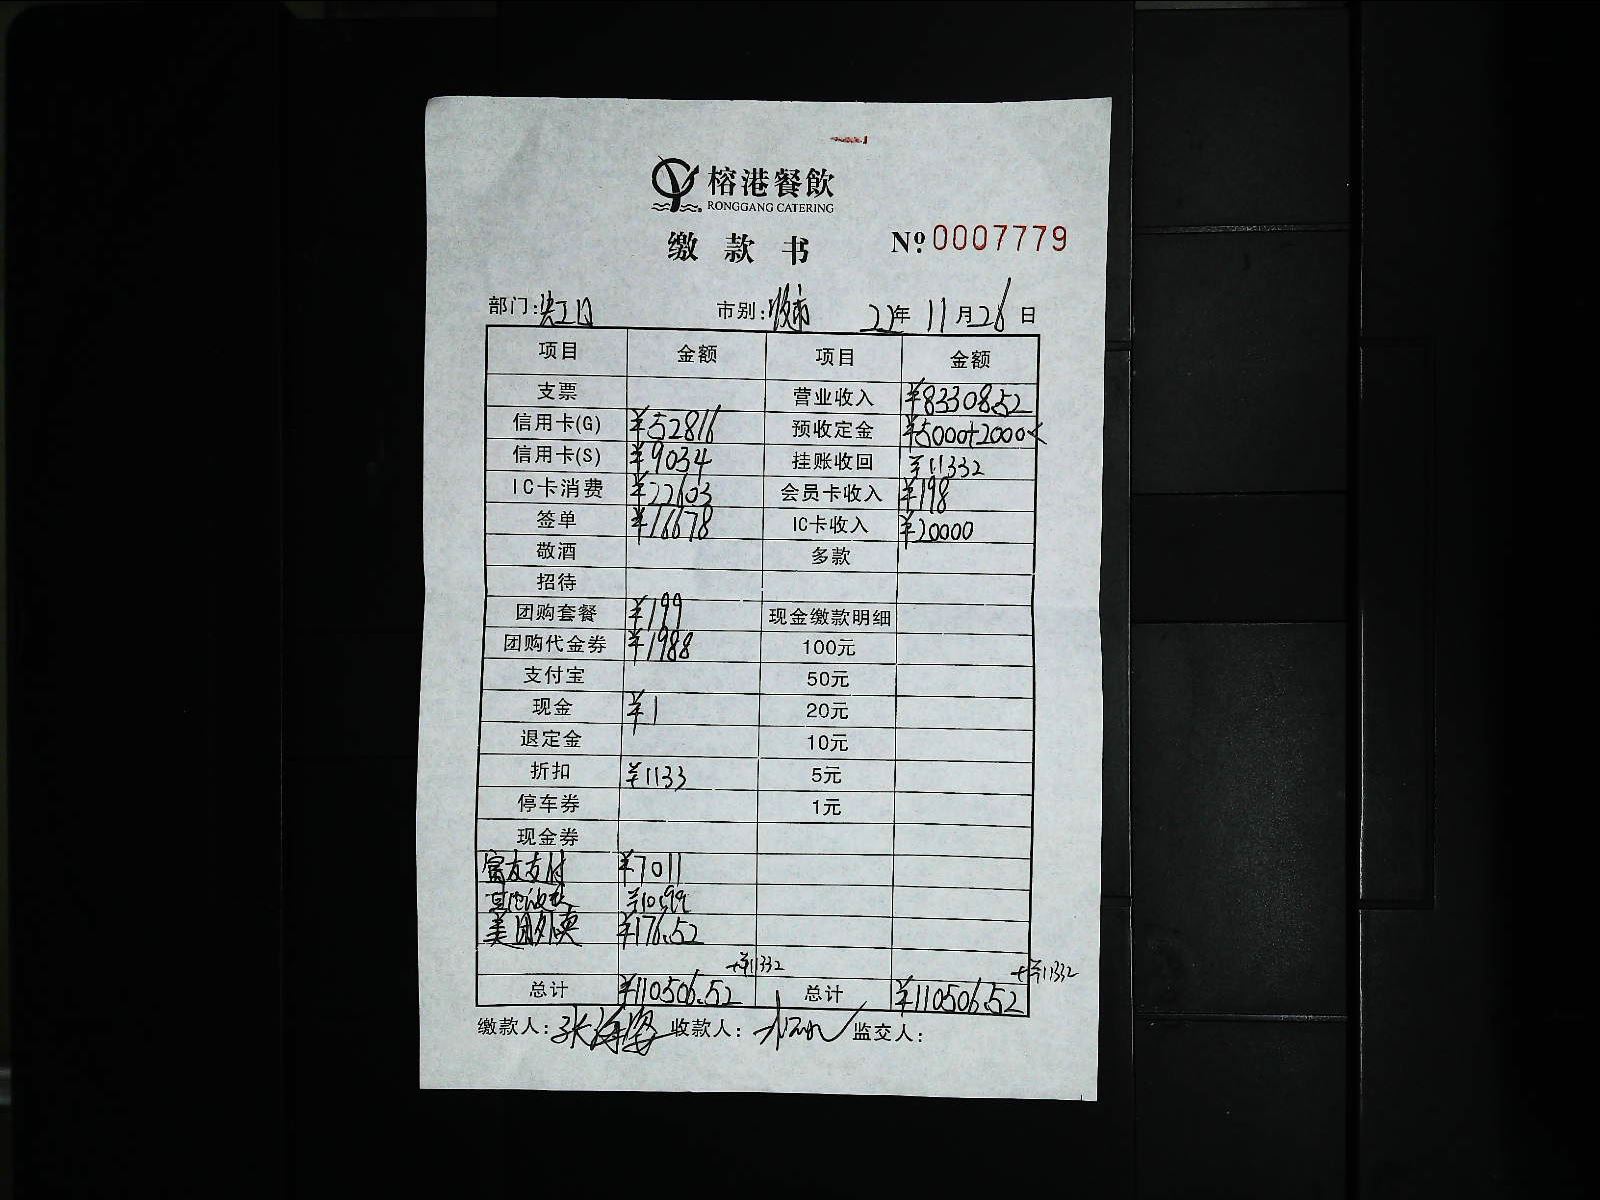 榕港餐飲
RONGGANG CATERING
缴款书 Nº 0007779
部门: 市别: 夜市 22年11月26日
项目 金额 项目 金额
支票 营业收入 ¥83308.52
信用卡(G) ¥52816 预收定金 ¥5000+2000
信用卡(S) ¥9034 挂账收回 ¥11332
IC卡消费 ¥22603 会员卡收入 ¥198
签单 ¥16678 IC卡收入 ¥20000
敬酒 多款
招待
团购套餐 ¥199 现金缴款明细
团购代金券 ¥1988 100元
支付宝 50元
现金 ¥1 20元
退定金 10元
折扣 ¥1133 5元
停车券 1元
现金券
富友支付 ¥7011
¥10199
美团外卖 ¥176.52
+¥11332 +¥11332
总计 ¥110506.52 总计 ¥110506.52
缴款人: 张海 收款人: 监交人: